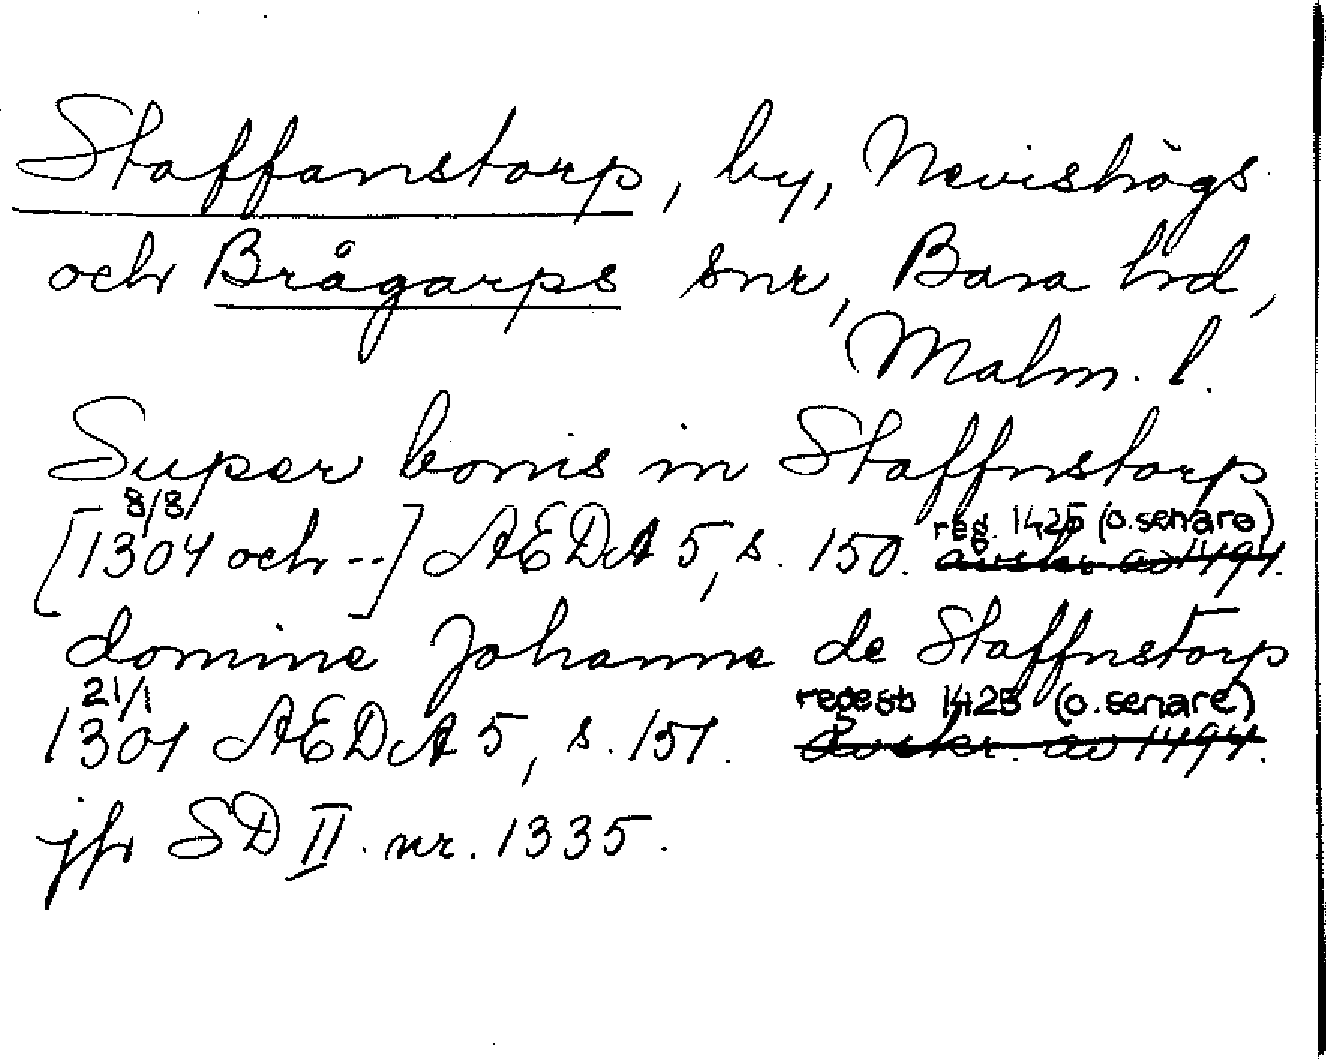 Staffanstorp, by, Nevishögs
och Brågarps snr, Bara hd,
Malm. l.
Super bonis in Staffnstorp
8/8
reg. 1425 (o. senare)
[1304 och --] ÆDA 5, s. 150. avskr. av 1494.
domine Johanne de Staffnstorp
21/1
regest 1425 (o. senare)
1301 ÆDA 5, s. 151. Avskr. av 1494.
jfr SD II. nr. 1335.